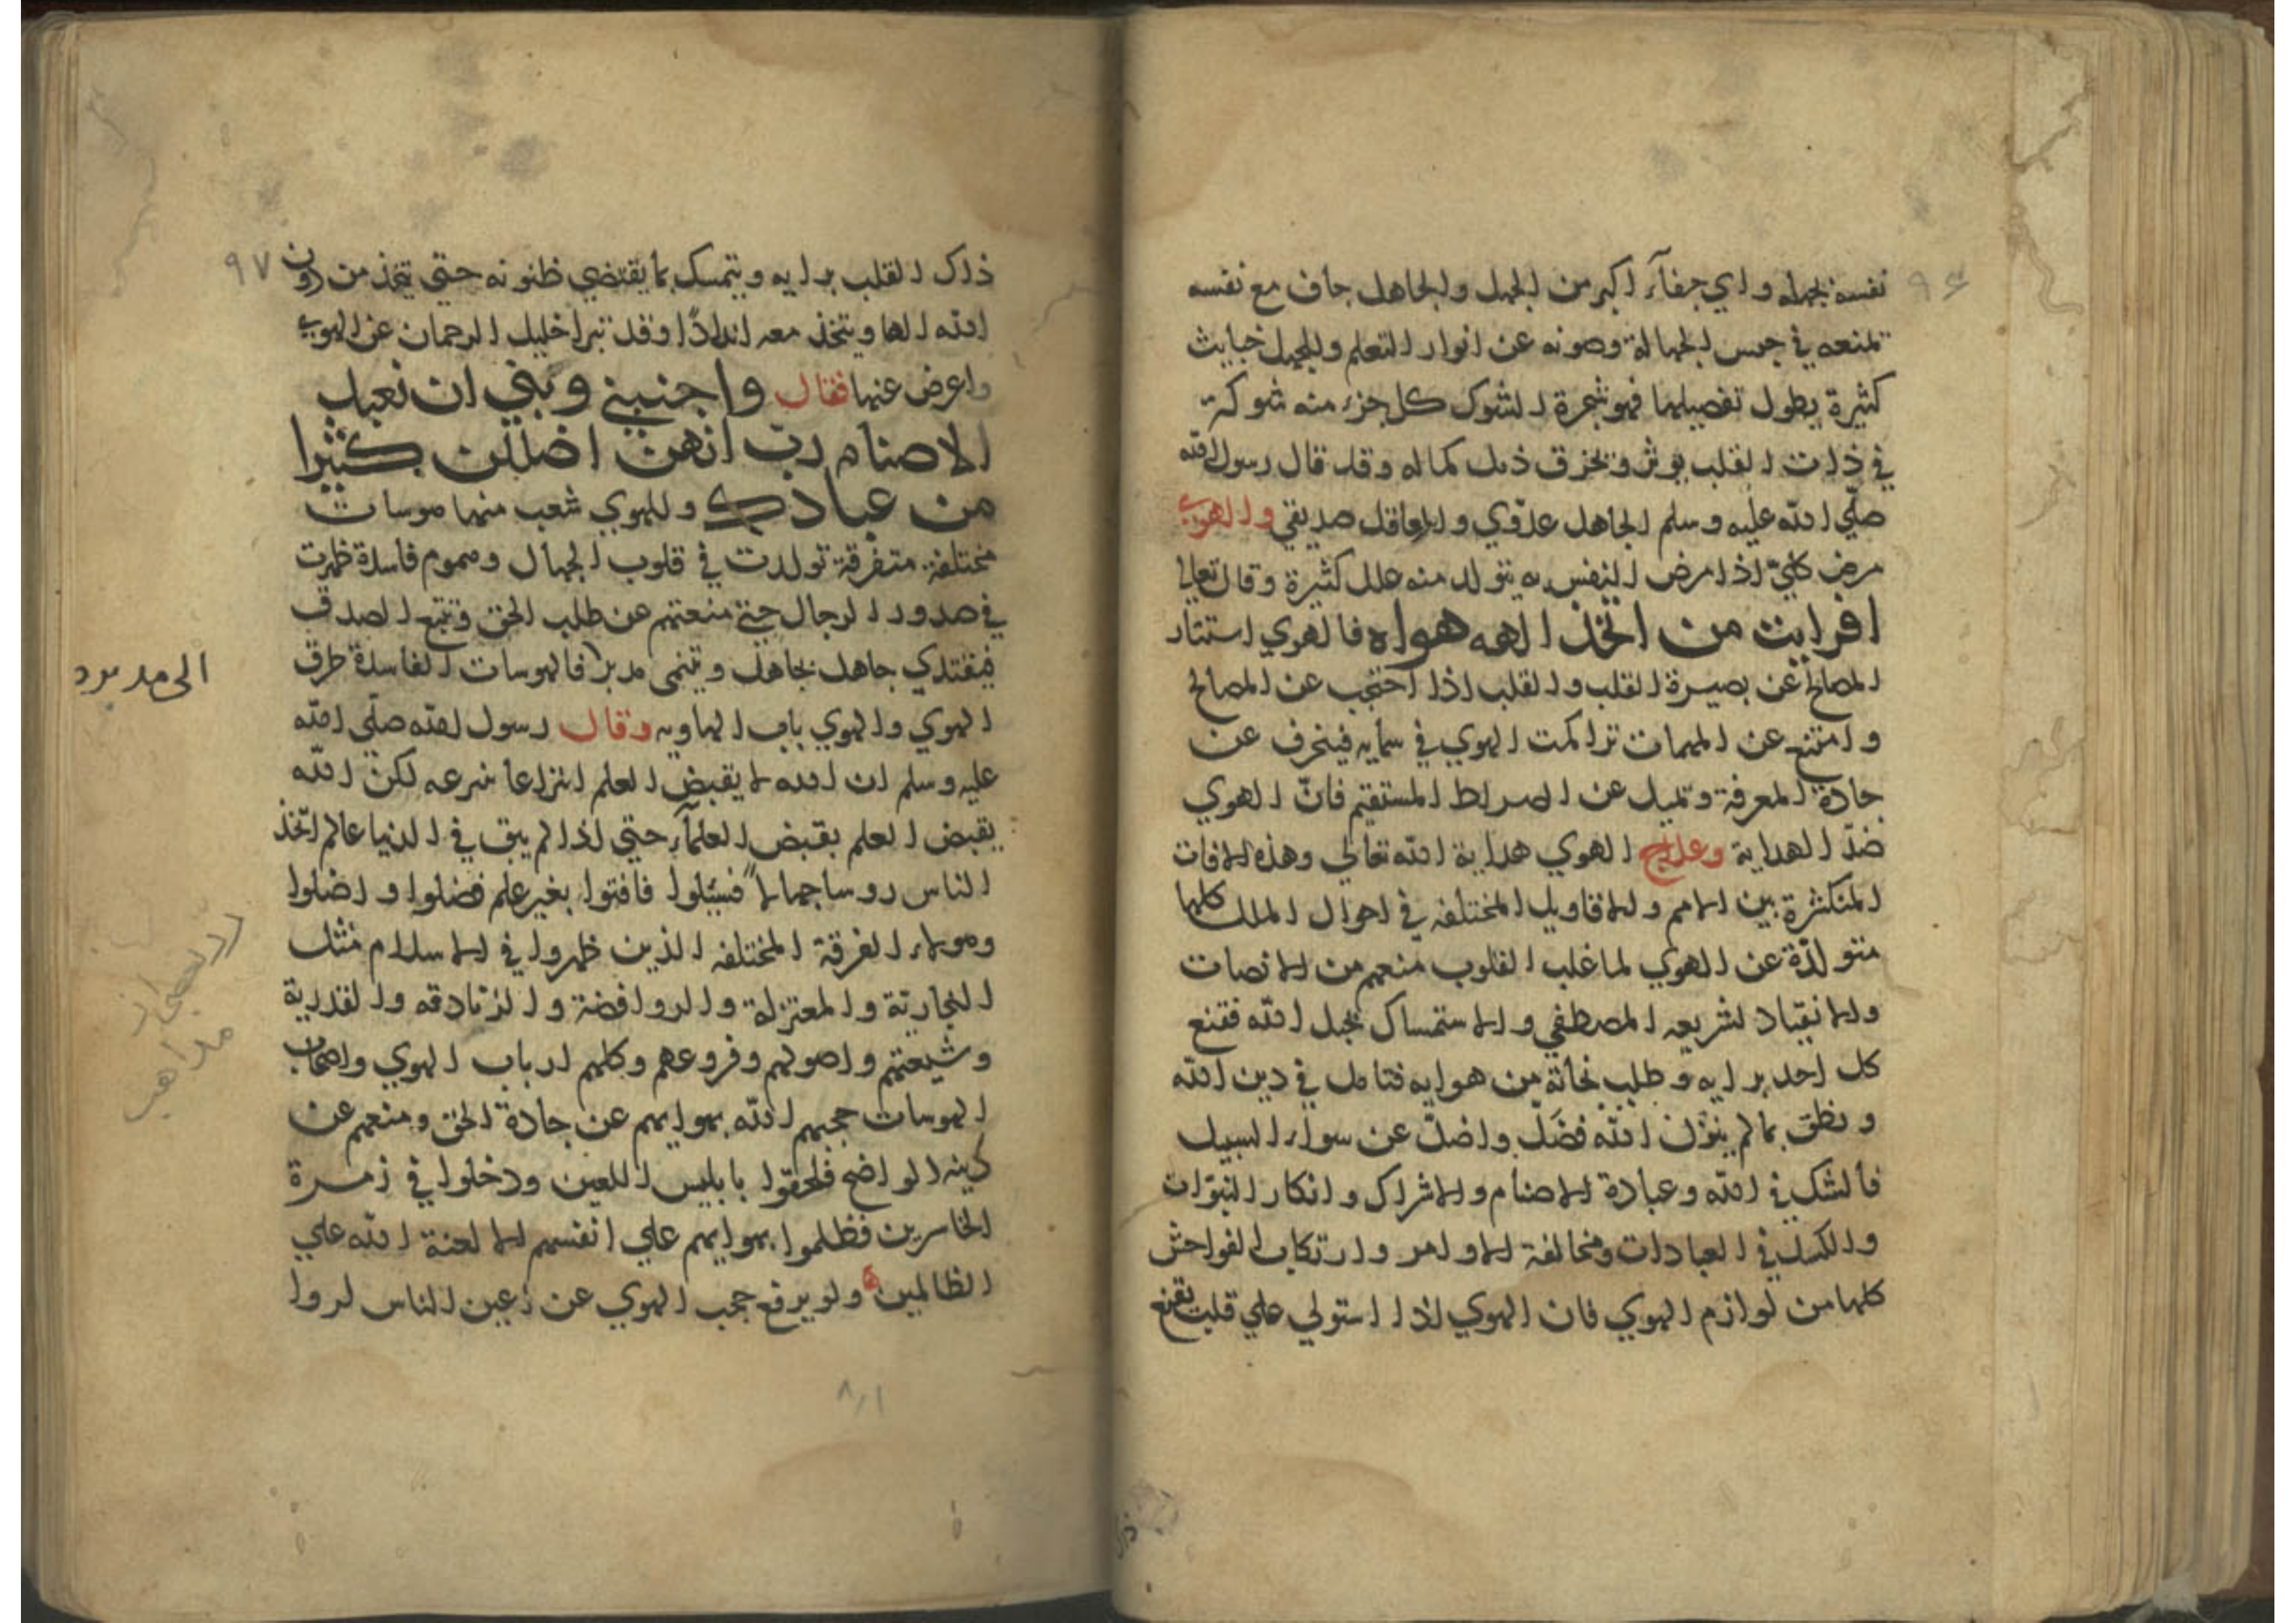 ٩٦
نفسه بجهله واي جفآء اكبر من الجهل والجاهل جاف مع نفسه
تمنعه في حبس الجهالة وصونه عن انوار التعلم وللجهل خبايث
كثيرة يطول تفصيلها فهو شجرة الشوك كل جزء منه شوكة
في ذات القلب يوثر وتخرق ذيل كماله وقد قال رسول الله
صلّي الله عليه وسلم الجاهل عدوّي والعاقل صديقي والهوي
مرض كليّ اذا مرض النفس به يتولد منه علل كثيرة وقال تعالي
افرايت من اتخذ الهه هواه فالهوي استتار
المصالح عن بصيرة القلب والقلب اذا احتجب عن المصالح
وامتنع عن المهمات تراكمت الهوي في سمايه فينحرف عن
جادة المعرفة وتميل عن الصراط المستقيم فانّ الهوي
ضدّ الهداية وعلاج الهوي هداية الله تعالي وهذه الافات
المتكثرة بين الامم والاقاويل المختلفه في احوال الملل كلها
متولدّة عن الهوي لما غلب القلوب منعهم من الانصات
والانقياد لشريعه المصطفي والاستمساك بحبل الله فقنع
كل احد برايه وطلب نجاته من هوايه فتامل في دين الله
ونطق بما لم ينزل الله فضَلّ واضلّ عن سواء السبيل
فالشك في الله وعبادة الاصنام والاشراك وانكار النبوّات
والكسل في العبادات ومخالفة الاوامر وارتكاب الفواحش
كلها من لوازم الهوي فان الهوي اذا استولي علي قلب يقنع
ذلك
٩٧
ذلك القلب برايه ويتمسك بما يقتضي ظنونه حتي يتخذ من دون
الله الها ويتخذ معه اندادًا وقد تبرا خليل الرحمان عن الهوي
واعرض عنها فقال واجنبني وبني ان نعبد
الاصنام رب انهن اضللن كثيرا
من عبادك وللهوي شعب منها هوسات
مختلفة متفرقة تولدت في قلوب الجهال وهموم فاسدة ظهرت
في صدور الرجال حتي منعتهم عن طلب الحق وتتبع الصدق
فيقتدي جاهل بجاهل وينمي مدبرا فالهوسات الفاسدة طرق
الهوي والهوي باب الهاويه وقال رسول الله صلّي الله
عليه وسلم ان الله لا يقبض العلم انتزاعا ينزعه لكن الله
يقبض العلم بقبض العلمآء حتي اذا لم يبق في الدنيا عالم اتخذ
الناس روسا جهالا فسئلوا فافتوا بغير علم فضلوا واضلوا
وهولاء الفرقة المختلفه الذين ظهروا في الاسلام مثل
النجارية والمعتزلة والروافضة والزنادقه والقدرية
وشيعتهم واصولهم وفروعهم وكلهم ارباب الهوي واصحاب
الهوسات حجبهم الله بهوايهم عن جادة الحق ومنعهم عن
دينه الواضح فلحقوا بابليس اللعين ودخلوا في زمرة
الخاسرين فظلموا بهوايهم علي انفسهم الا لعنة الله علي
الظالمين ولو يرفع حجب الهوي عن اعين الناس لروا
مذاهب